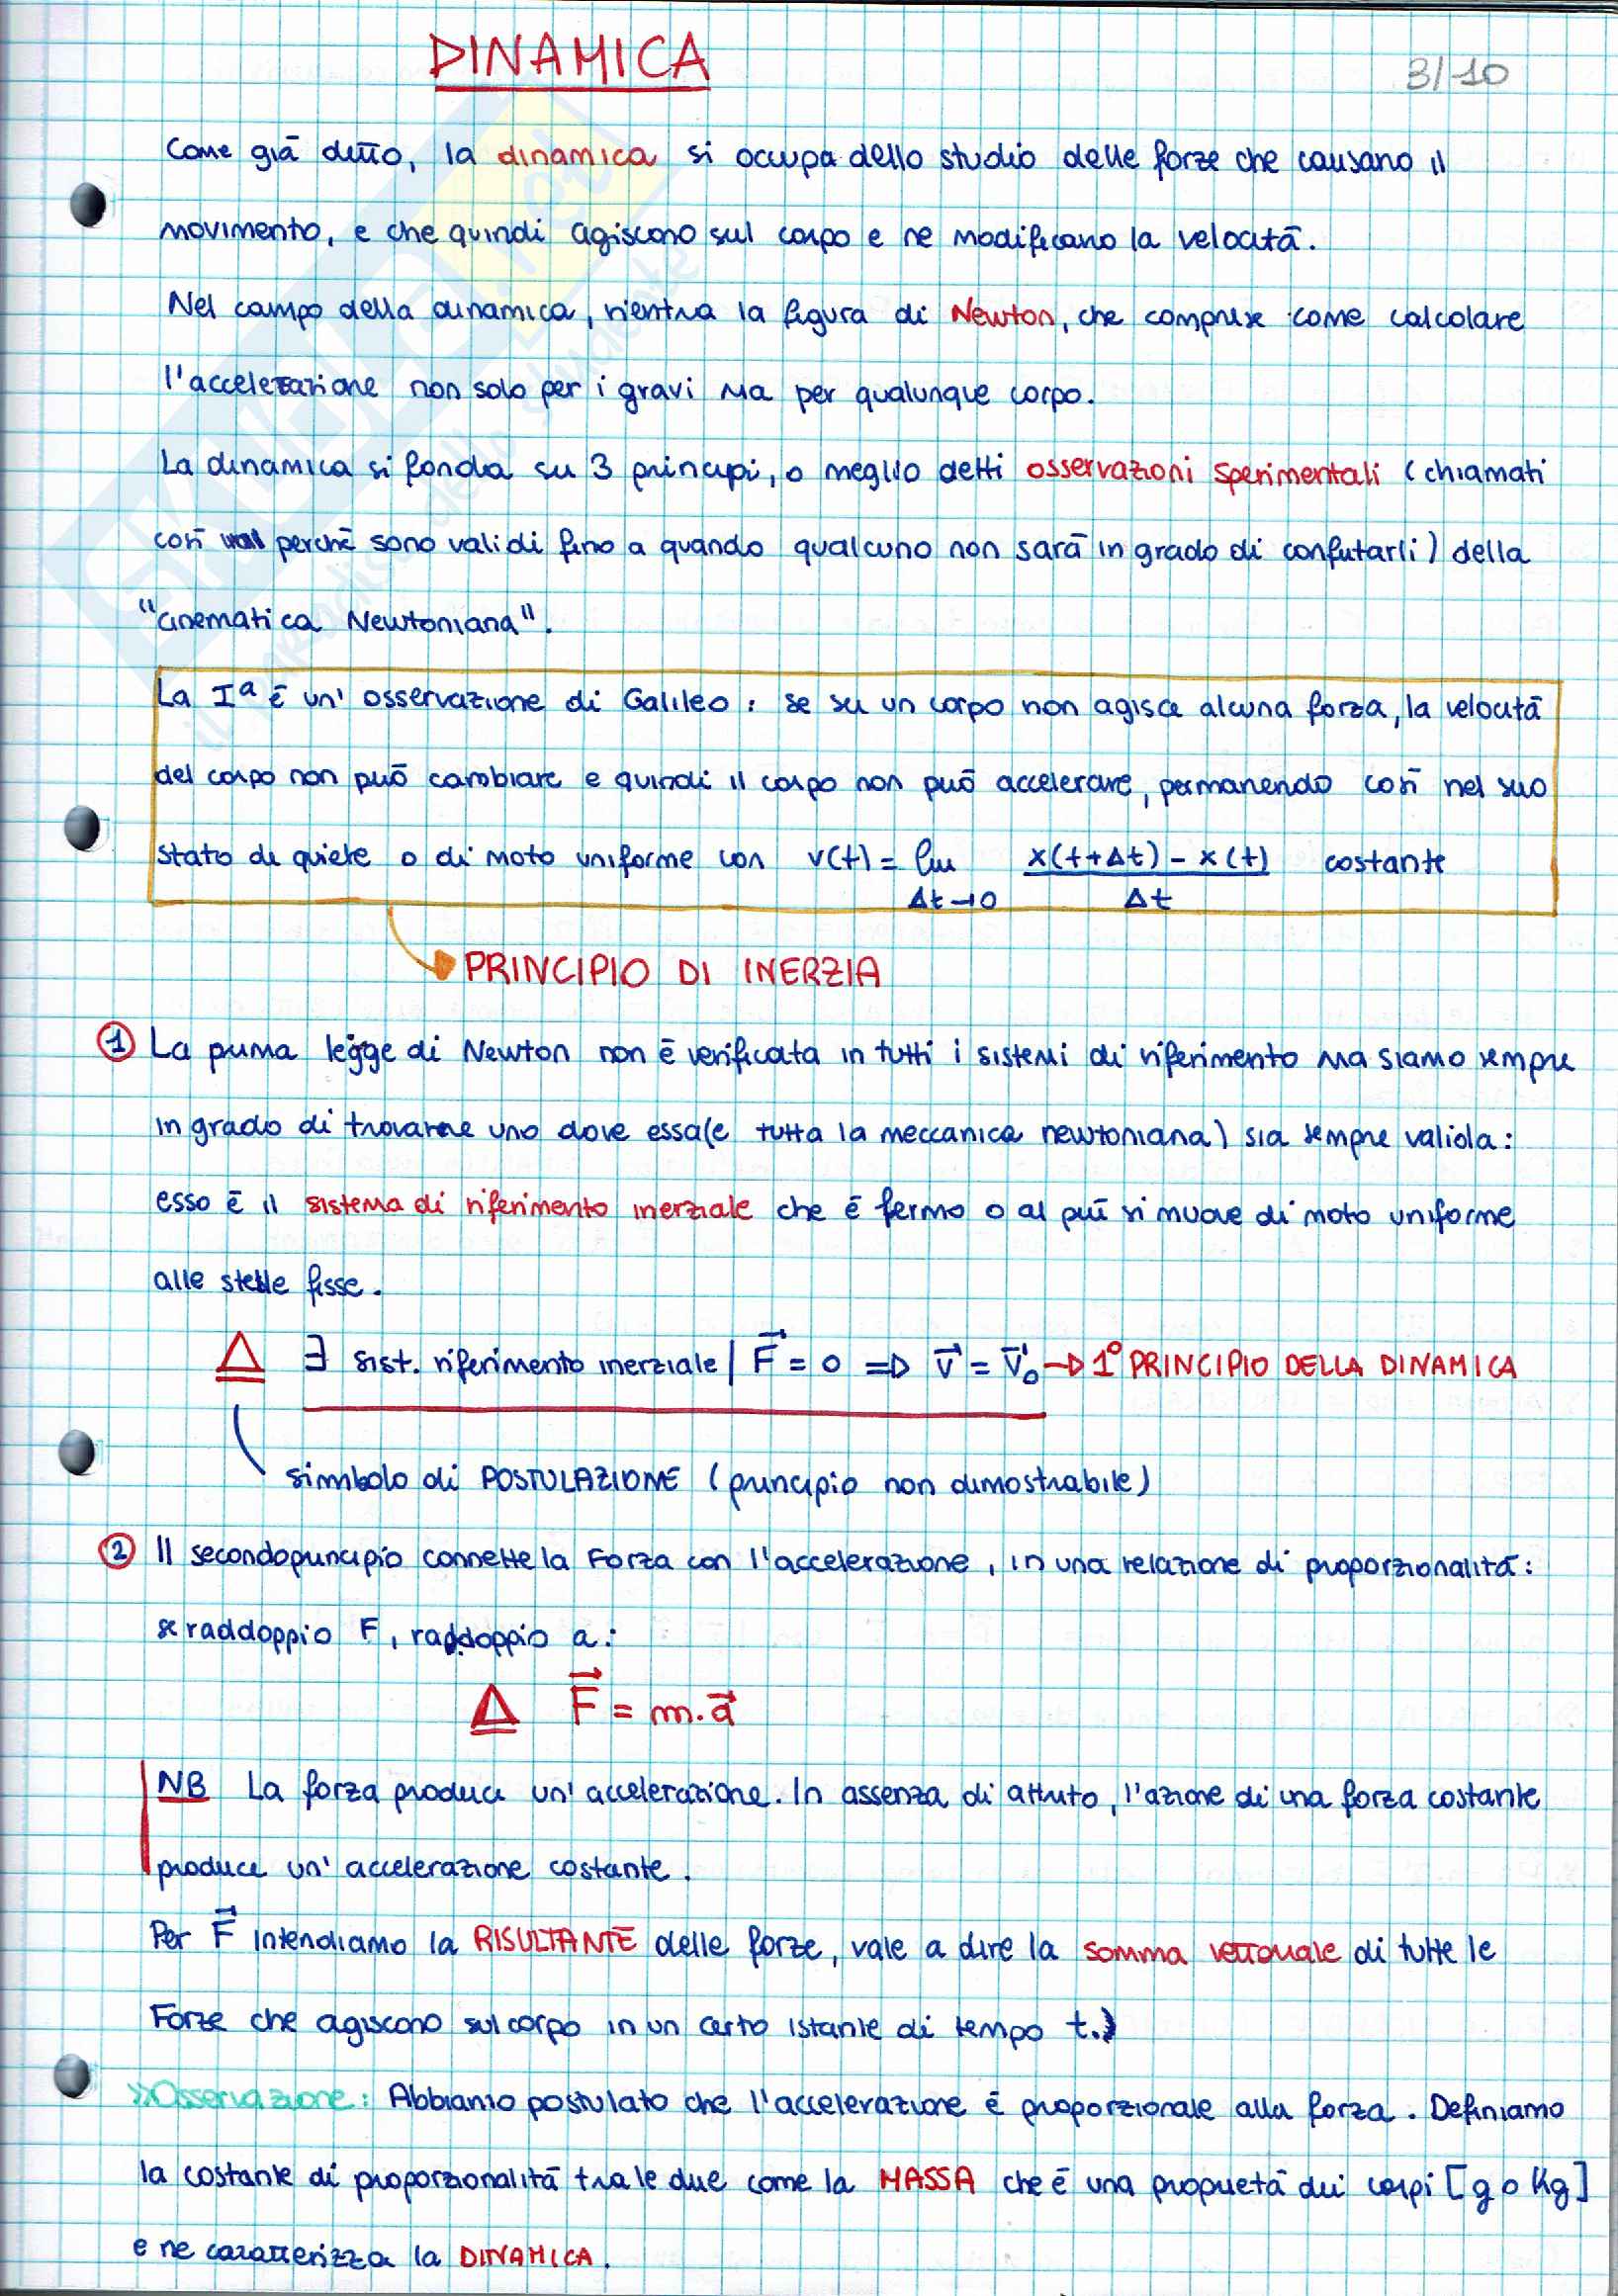 DINAMICA
3/10
Come già detto, la dinamica si occupa dello studio delle forze che causano il
movimento, e che quindi agiscono sul corpo e ne modificano la velocità.
Nel campo della dinamica, rientra la figura di Newton, che comprese come calcolare
l'accelerazione non solo per i gravi ma per qualunque corpo.
La dinamica si fonda su 3 principi, o meglio detti osservazioni sperimentali (chiamati
così perché sono validi fino a quando qualcuno non sarà in grado di confutarli) della
"cinematica Newtoniana".
La Iª è un'osservazione di Galileo: se su un corpo non agisce alcuna forza, la velocità
del corpo non può cambiare e quindi il corpo non può accelerare, permanendo così nel suo
stato di quiete o di moto uniforme con v(t) = lim Δt→0 x(t+Δt) - x(t) / Δt costante
PRINCIPIO DI INERZIA
1 La prima legge di Newton non è verificata in tutti i sistemi di riferimento ma siamo sempre
in grado di trovarne uno dove essa (e tutta la meccanica newtoniana) sia sempre valida:
esso è il sistema di riferimento inerziale che è fermo o al più si muove di moto uniforme
alle stelle fisse.
Δ ∃ sist. riferimento inerziale | F⃗ = 0 ⇒ v⃗ = v⃗₀ → 1° PRINCIPIO DELLA DINAMICA
simbolo di POSTULAZIONE (principio non dimostrabile)
2 Il secondo principio connette la Forza con l'accelerazione, in una relazione di proporzionalità:
se raddoppio F, raddoppio a:
Δ F⃗ = m·a⃗
NB La forza produce un'accelerazione. In assenza di attrito, l'azione di una forza costante
produce un'accelerazione costante.
Per F⃗ intendiamo la RISULTANTE delle forze, vale a dire la somma vettoriale di tutte le
Forze che agiscono sul corpo in un certo istante di tempo t.
»Osservazione: Abbiamo postulato che l'accelerazione è proporzionale alla forza. Definiamo
la costante di proporzionalità tra le due come la MASSA che è una proprietà dei corpi [g o Kg]
e ne caratterizza la DINAMICA.